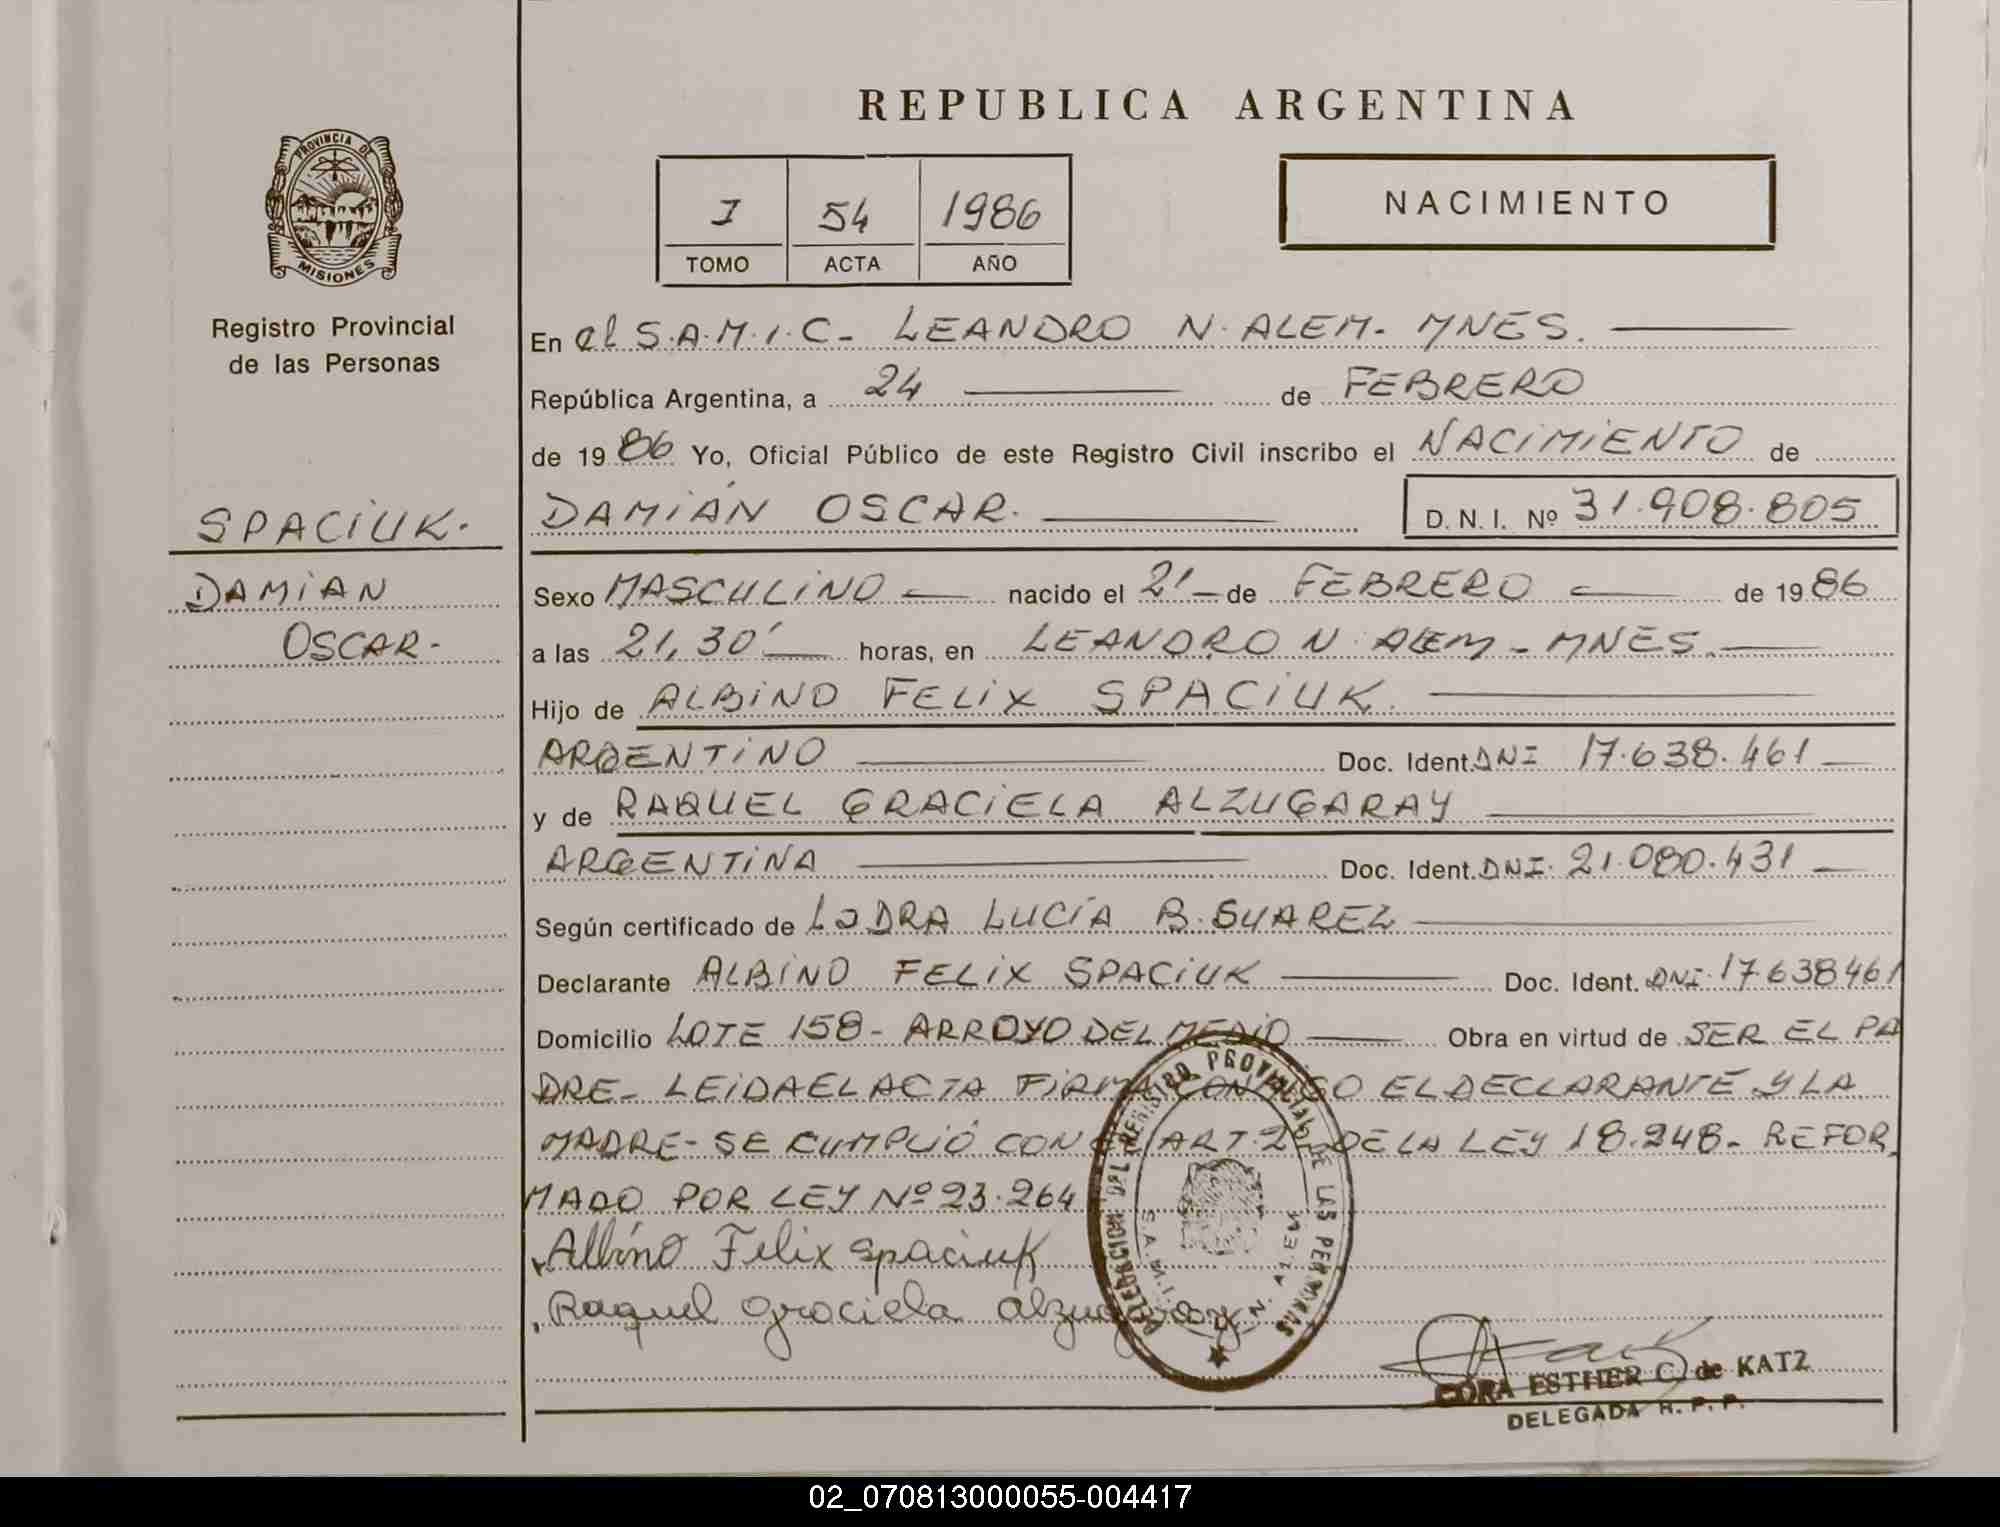 REPUBLICA ARGENTINA
PROVINCIA DE
MISIONES
Registro Provincial
de las Personas
I 54 1986
TOMO ACTA AÑO
NACIMIENTO
SPACIUK.
DAMIAN
OSCAR-
En el S.A.M.I.C- LEANDRO N. ALEM- MNES.
República Argentina, a 24 de FEBRERO
de 1986 Yo, Oficial Público de este Registro Civil inscribo el NACIMIENTO de
DAMIÁN OSCAR. D. N. I. Nº 31.908.805
Sexo MASCULINO nacido el 21 de FEBRERO de 1986
a las 21,30' horas, en LEANDRO N. ALEM - MNES.
Hijo de ALBINO FELIX SPACIUK.
ARGENTINO Doc. Ident. DNI 17.638.461
y de RAQUEL GRACIELA ALZUGARAY
ARGENTINA Doc. Ident. DNI. 21.080.431
Según certificado de LUCÍA B. SUAREZ
Declarante ALBINO FELIX SPACIUK Doc. Ident. DNI. 17638461
Domicilio LOTE 158- ARROYO DEL MEDIO Obra en virtud de SER EL PA
DRE- LEIDA EL ACTA FIRMA CONMIGO EL DECLARANTE Y LA
MADRE- SE CUMPLIÓ CON ART. DE LA LEY 18.248- REFOR
MADO POR LEY Nº 23.264
Albino Felix Spaciuk
Raquel Graciela Alzugaray
DELEGACION DEL REGISTRO PROVINCIAL DE LAS PERSONAS
S.A.M.I.C. N. ALEM
CORA ESTHER C. de KATZ
DELEGADA R. P. P.
02_070813000055-004417